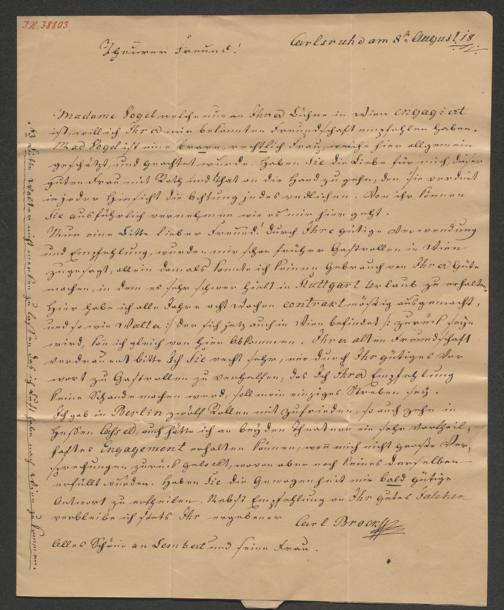 I.N. 38803
Carlsruhe am 8tn August 18
Theurer Freund!
Madame Vogel welche nun an Ihrer Bühne in Wien engagiert
ist, will ich Ihrer mir bekannten Freundschaft empfohlen haben.
Mad Vogel ist eine brave, rechtlich Frau, welche hier allgemein
geschätzt, und geachtet wurde. Haben Sie die Liebe für mich dieser
guten Frau mit Rath und That an die Hand zu gehen, den sie verdient
in jeder Hinsicht die Achtung jedes redlichen. Von ihr können
Sie ausführlich vernehmen wie es mir hier geht.
Nun eine Bitte lieber Freund! durch Ihre gütige Verwendung
und Empfehlung, wurden mir schon früher Gastrollen in Wien
zugesagt, allein damals konnte ich keinen Gebrauch von Ihrer Güte
machen, in dem es sehr schwer hielt in Stuttgart Urlaub zu erhalten
Hier habe ich alle Jahre acht Wochen contraktmäßig ausgemacht,
und so wie Walter /: der sich jetzt auch in Wien befindet :/ zurück seyn
wird, kan ich gleich von hier abkommen. Ihrer alten Freundschaft
vertrauend bitte ich Sie recht sehr, mir durch Ihr gütiges Vor
wort zu Gastrollen zu verhelfen, das ich Ihrer Empfehlung
keine Schande machen werd, soll mein einziges Streben sey.
Ich gab in Berlin zwölf Rollen mit zufrieden, so auch zehn in
Hessen Cassel, auch hätte ich an beyden Theatern ein sehr vortheil,
haftes Engagement erhalten können, wenn mich nicht große Ver,
sprechungen zurück gelockt, wovon aber noch keines derselben
erfüllt wurden. Haben Sie die Gewogenheit mir bald gütige
Antwort zu ertheilen. Nebst Empfehlung an Ihr gutes
verbleibe ich stets Ihr ergebener
Carl Brock
Alles Schöne an Lembert und seine Frau.
NB bitte Walter nicht merken zu lassen das ich Lust habe nach Wien zu kommen.